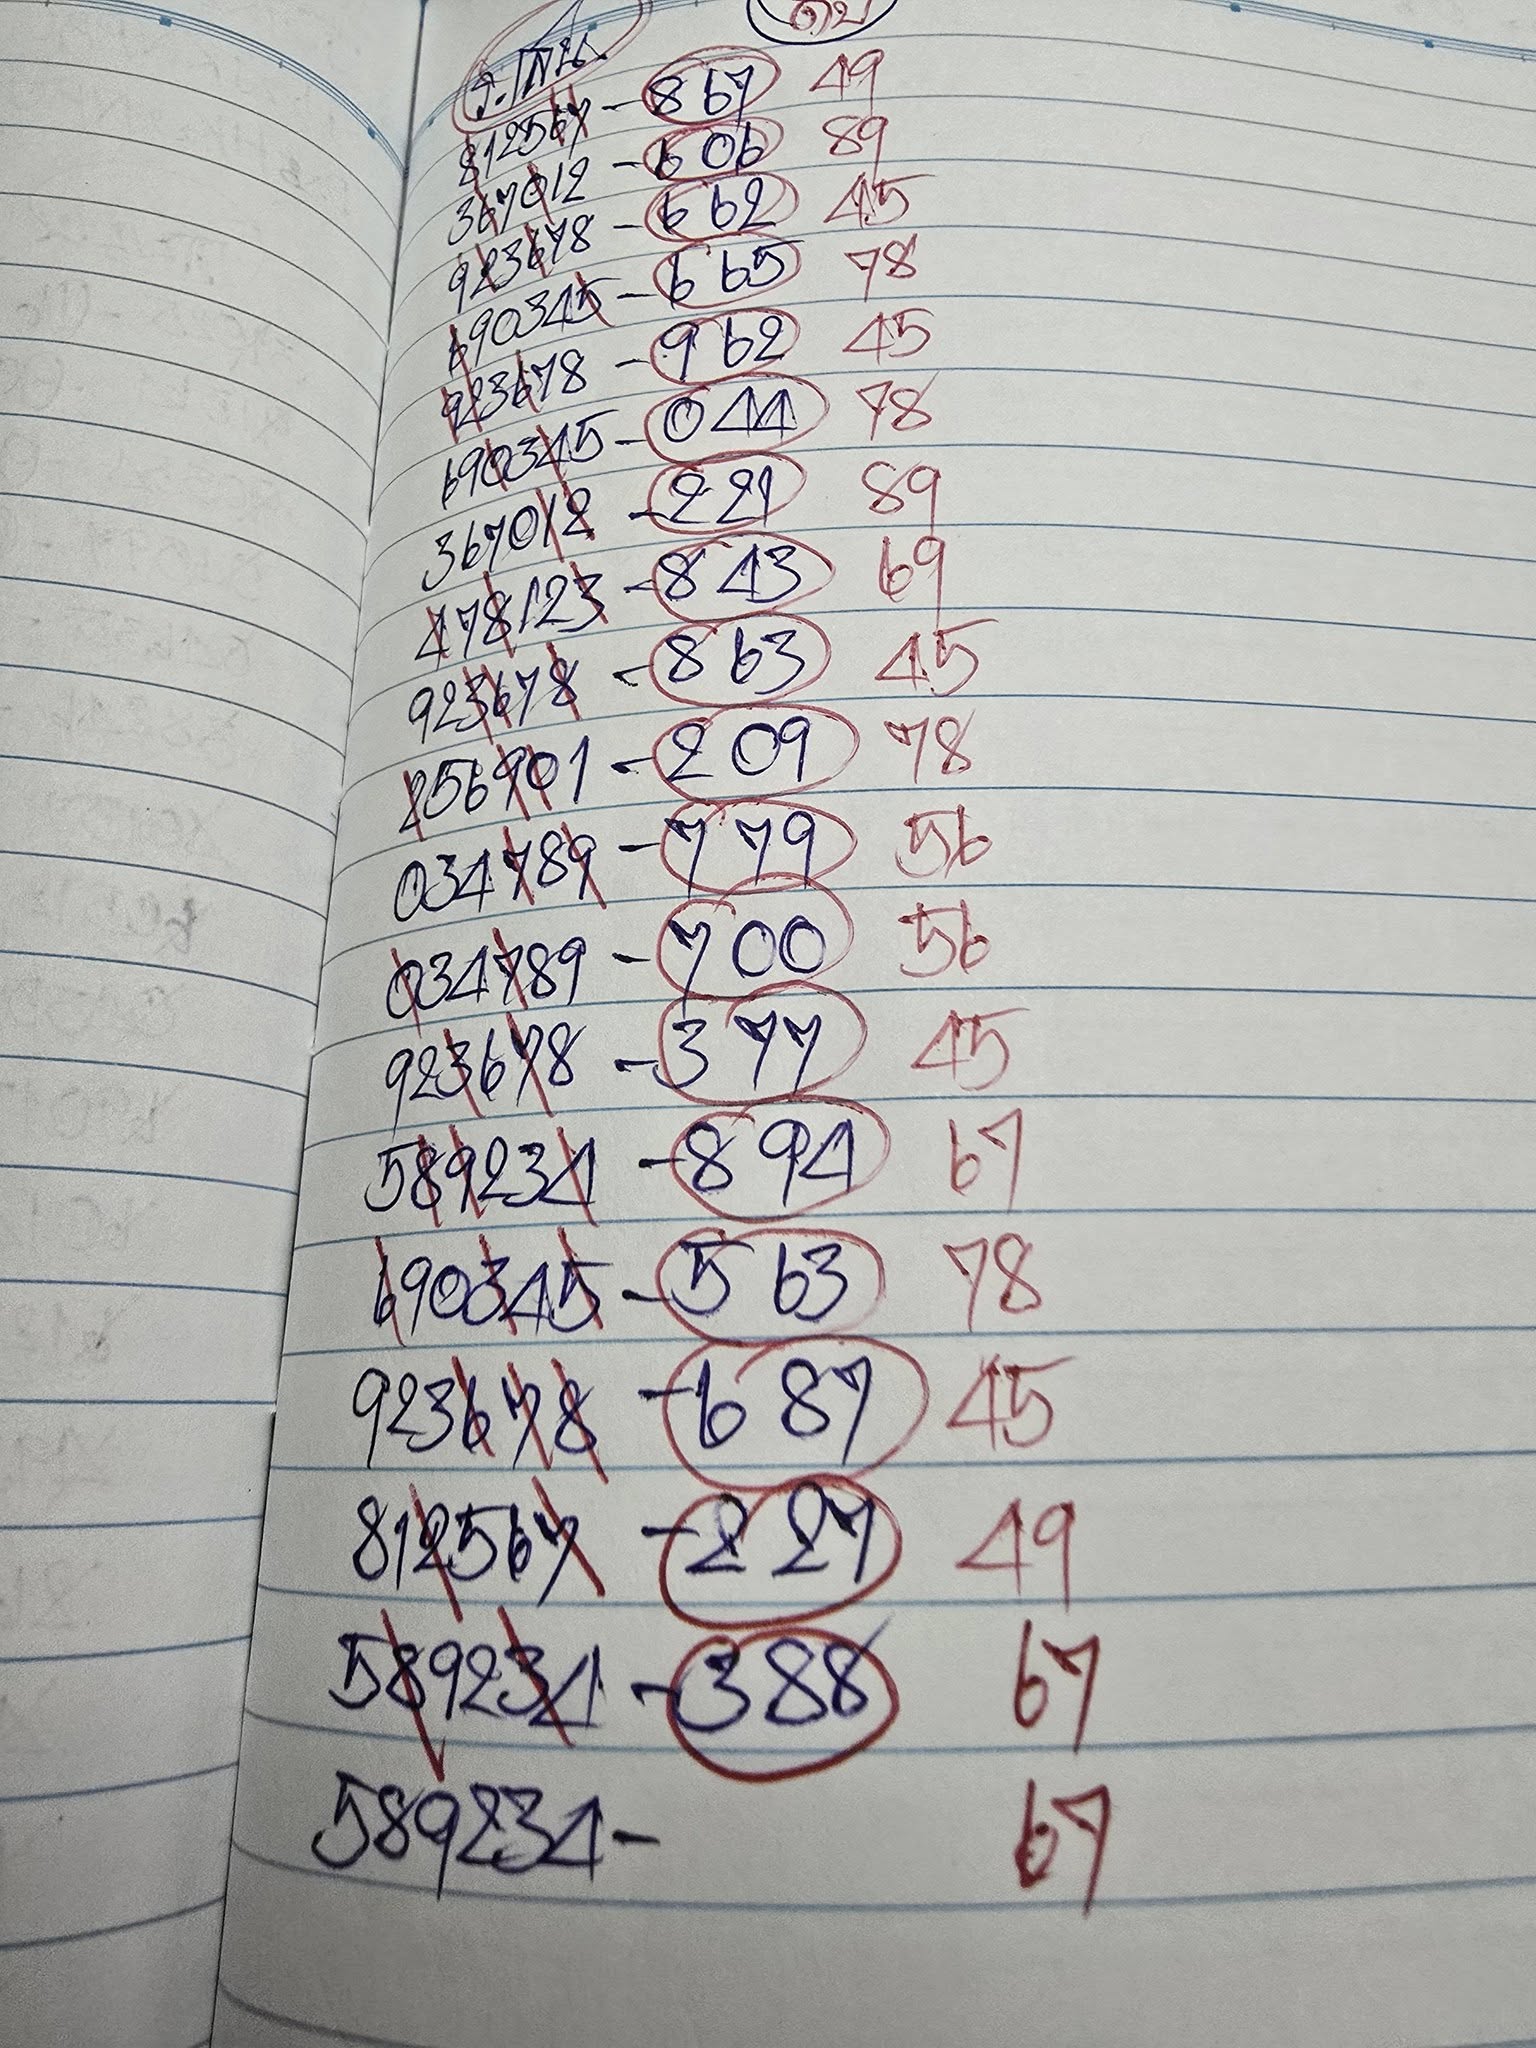 ดับ
812567 - 867 49
367012 - 606 89
923678 - 662 45
690345 - 665 78
923678 - 962 45
690345 - 044 78
367012 - 221 89
478123 - 843 69
923678 - 863 45
256901 - 209 78
034789 - 779 56
034789 - 700 56
923678 - 377 45
589234 - 894 67
690345 - 563 78
923678 - 687 45
812567 - 227 49
589234 - 388 67
589234 - 67